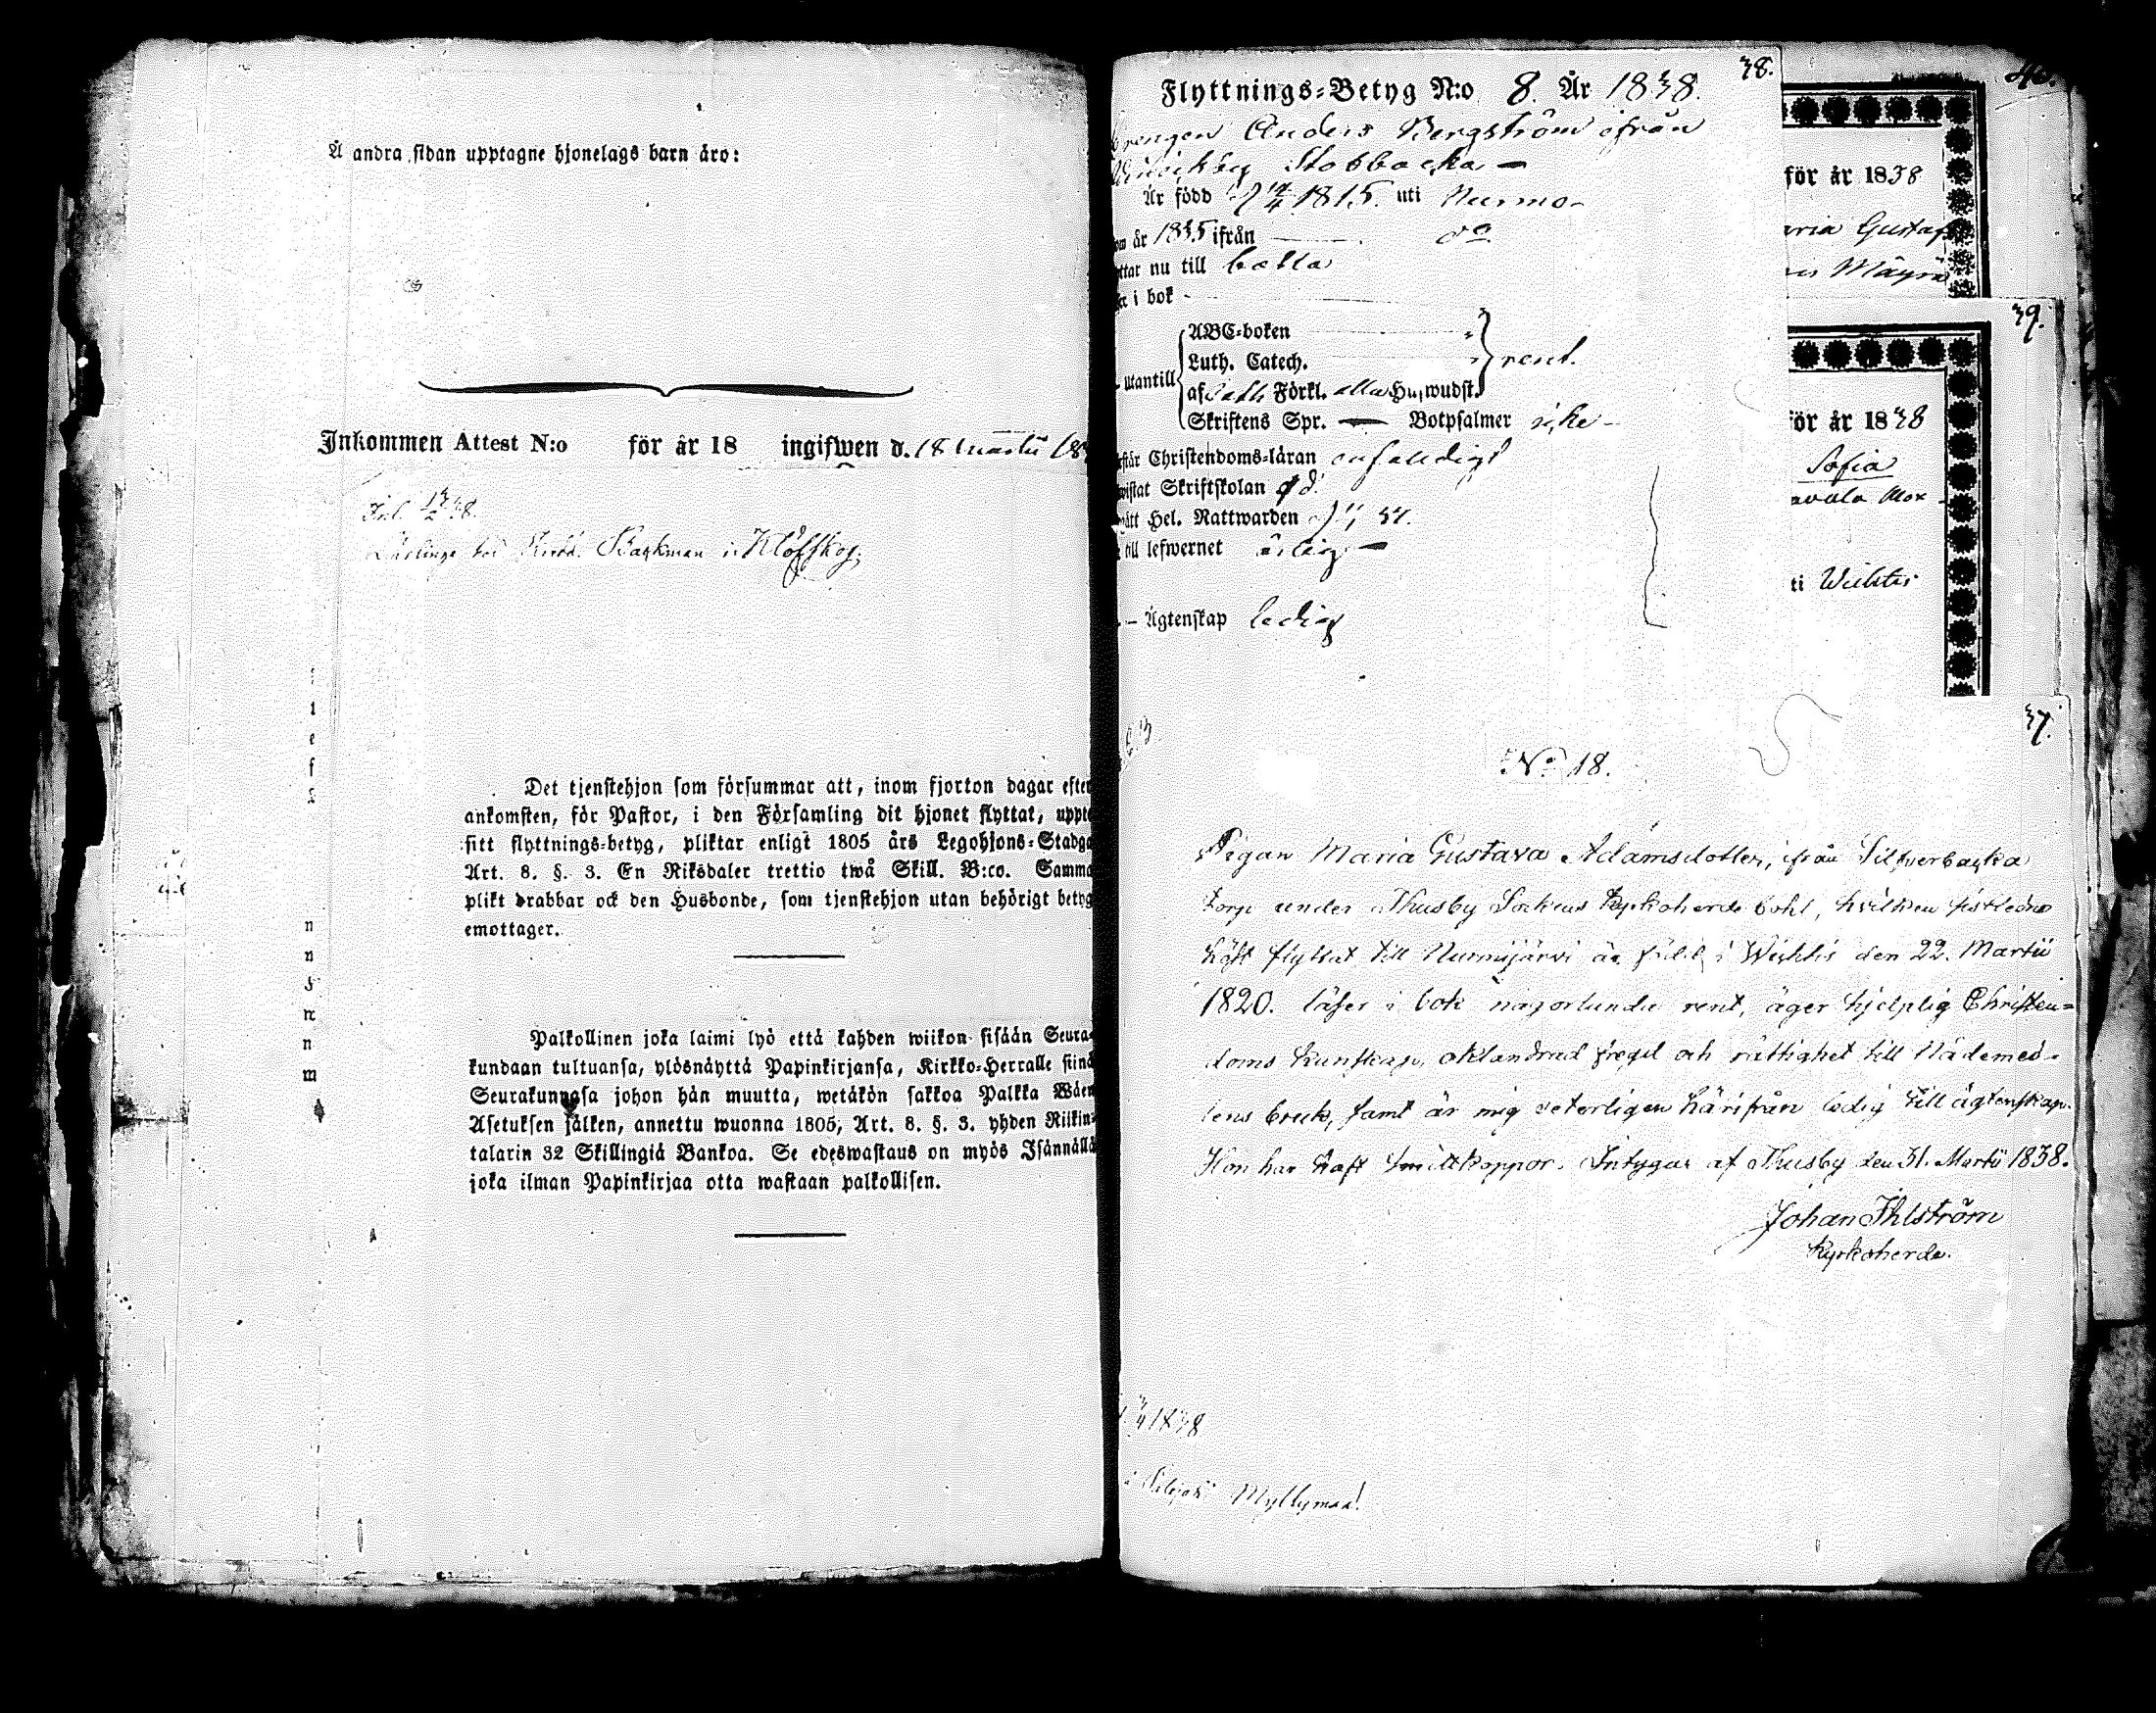 Å andra sidan upptagne hjonelags barn äro:
Inkommen Attest N:o för år 18 ingifwen d. 18 Martii 18
Inl.
Lärlinge hos Backman i Klöfskog
Det tjenstehjon som försummar att, inom fjorton dagar efter
ankomsten, för Pastor, i den Församling dit hjonet flyttat, uppte
sitt flyttnings-betyg, pliktar enligt 1805 års Legohjons-Stadga
Art. 8. §. 3. En Riksdaler trettio twå Skill. B:co. Samma
plikt drabbar ock den Husbonde, som tjenstehjon utan behörigt betyg
emottager.
Palkollinen joka laimi lyö että kahden wiikon sisään Seura-
kundaan tultuansa, ylösnäyttä Papinkirjansa, Kirkko-Herralle siinä
Seurakunnasa johon hän muutta, wetäkön sakkoa Palkka Wäen
Asetuksen jälken, annettu wuonna 1805, Art. 8. §. 3. yhden Riikin-
talarin 32 Skillingiä Bankoa. Se edeswastaus on myös Isännällä
joka ilman Papinkirjaa otta wastaan palkollisen.
38.
Flyttnings-Betyg N:o 8. År 1838.
Drengen Anders Bergström ifrån
Stobbacka
Är född d 14/4 1815. uti Nurmo
år 1835 ifrån do
ttar nu till
i bok
ABC-boken
Luth. Catech. rent.
utantill
af Förkl. alla Hufwudst.
Skriftens Spr. Botpsalmer icke
står Christendoms-läran enfaldigt
wistat Skriftskolan
Hel. Nattwarden
till lefwernet ärlig
Ägtenskap ledig
40.
för år 1838
aria Gustaf
Mäyrä
39.
för år 1838
Sofia
ti Wichtis
37.
No 18.
Pigan Maria Gustava Adamsdotter, ifrån Silfverbacka
torp under Thusby Sockens Kyrkoherde bohl, hvilken sistledne
höst flyttat till Nurmijärvi är född i Wichtis den 22. Martii
1820. läser i bok någorlunda rent, äger hjelplig Christen-
doms kunskap, oklandrad fregd och rättighet till Nådemed-
lens bruk, samt är mig veterligen härifrån ledig till ägtenskap.
Hon har haft Smittkoppor. Intygar af Thusby den 31. Martii 1838.
Johan Ihlström
Kyrkoherde.
1838
Myllymaa